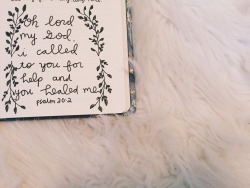 Oh lord
my God,
i called
to you for
help and
you healed me.
psalm 30:2